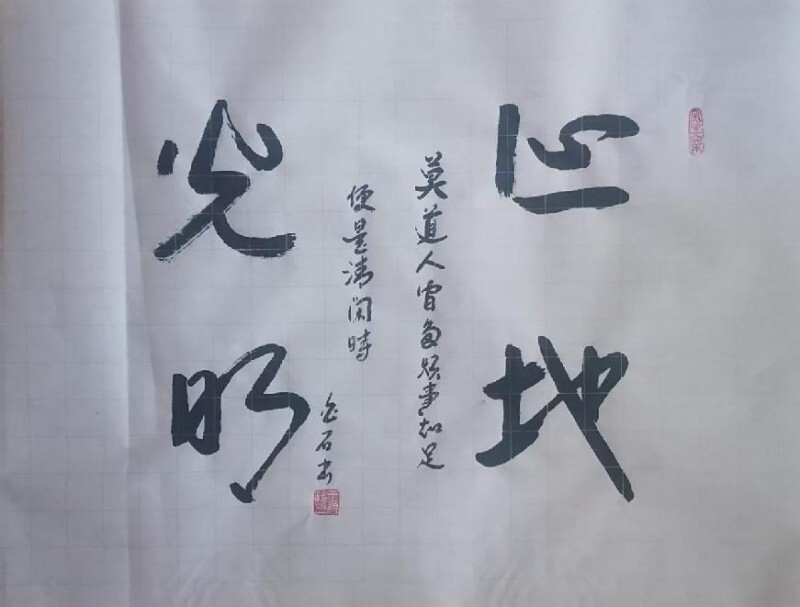 心地
光明
莫道人多烦事知足
便是清闲時
石书